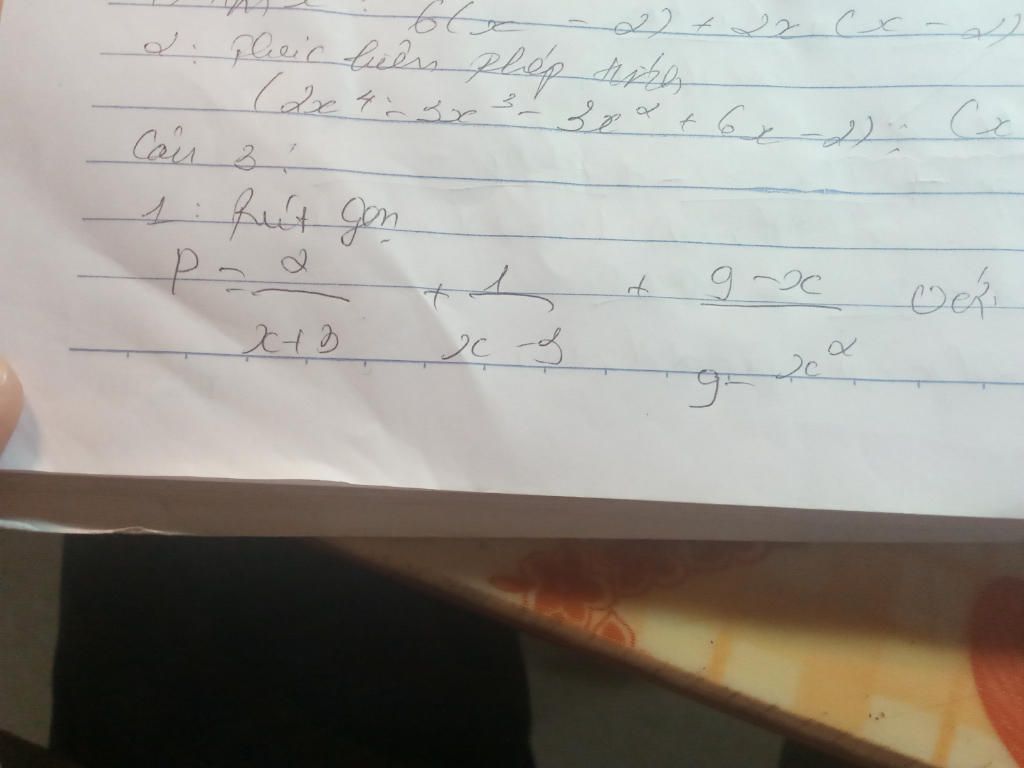 6(x - 2) + 2x (x - 2)
2: thực hiện phép tính
(2x⁴ - 3x³ - 3x² + 6x - 2) : (x
Câu 3:
1: Rút gọn
P = 2/(x+3) + 1/(x-3) + (9-x)/(9-x²) với